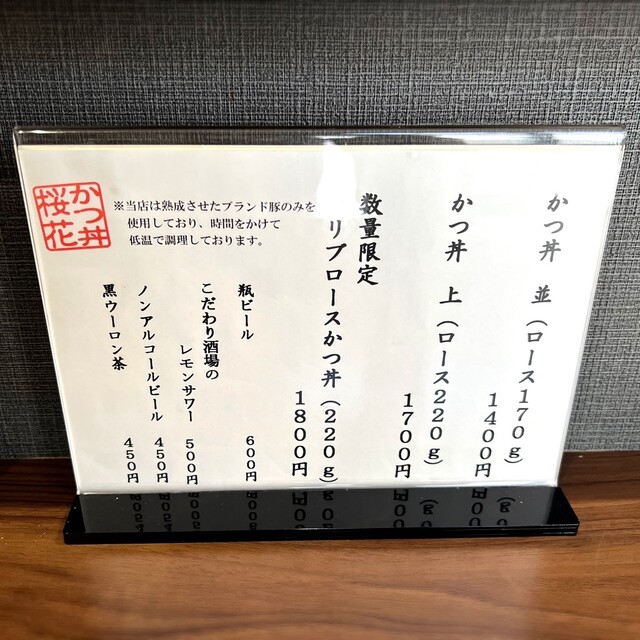 かつ丼 並（ロース170g）
1400円
かつ丼 上（ロース220g）
1700円
数量限定
リブロースかつ丼（220g）
1800円
かつ丼
桜花
※当店は熟成させたブランド豚のみを
使用しており、時間をかけて
低温で調理しております。
瓶ビール 600円
こだわり酒場の
レモンサワー 500円
ノンアルコールビール 450円
黒ウーロン茶 450円